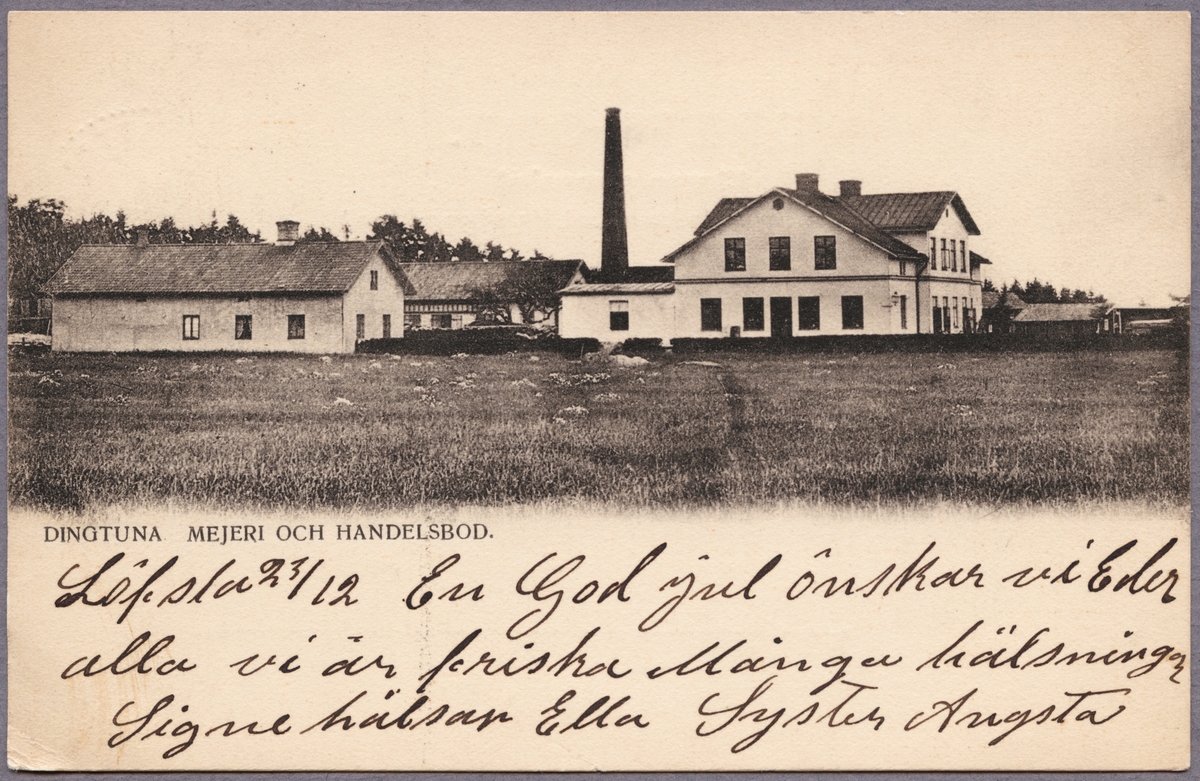 DINGTUNA MEJERI OCH HANDELSBOD.
Löfsta 23/12 En God jul önskar vi Eder
alla vi är friska Många hälsningar
Signe hälsar Ella Syster Augsta